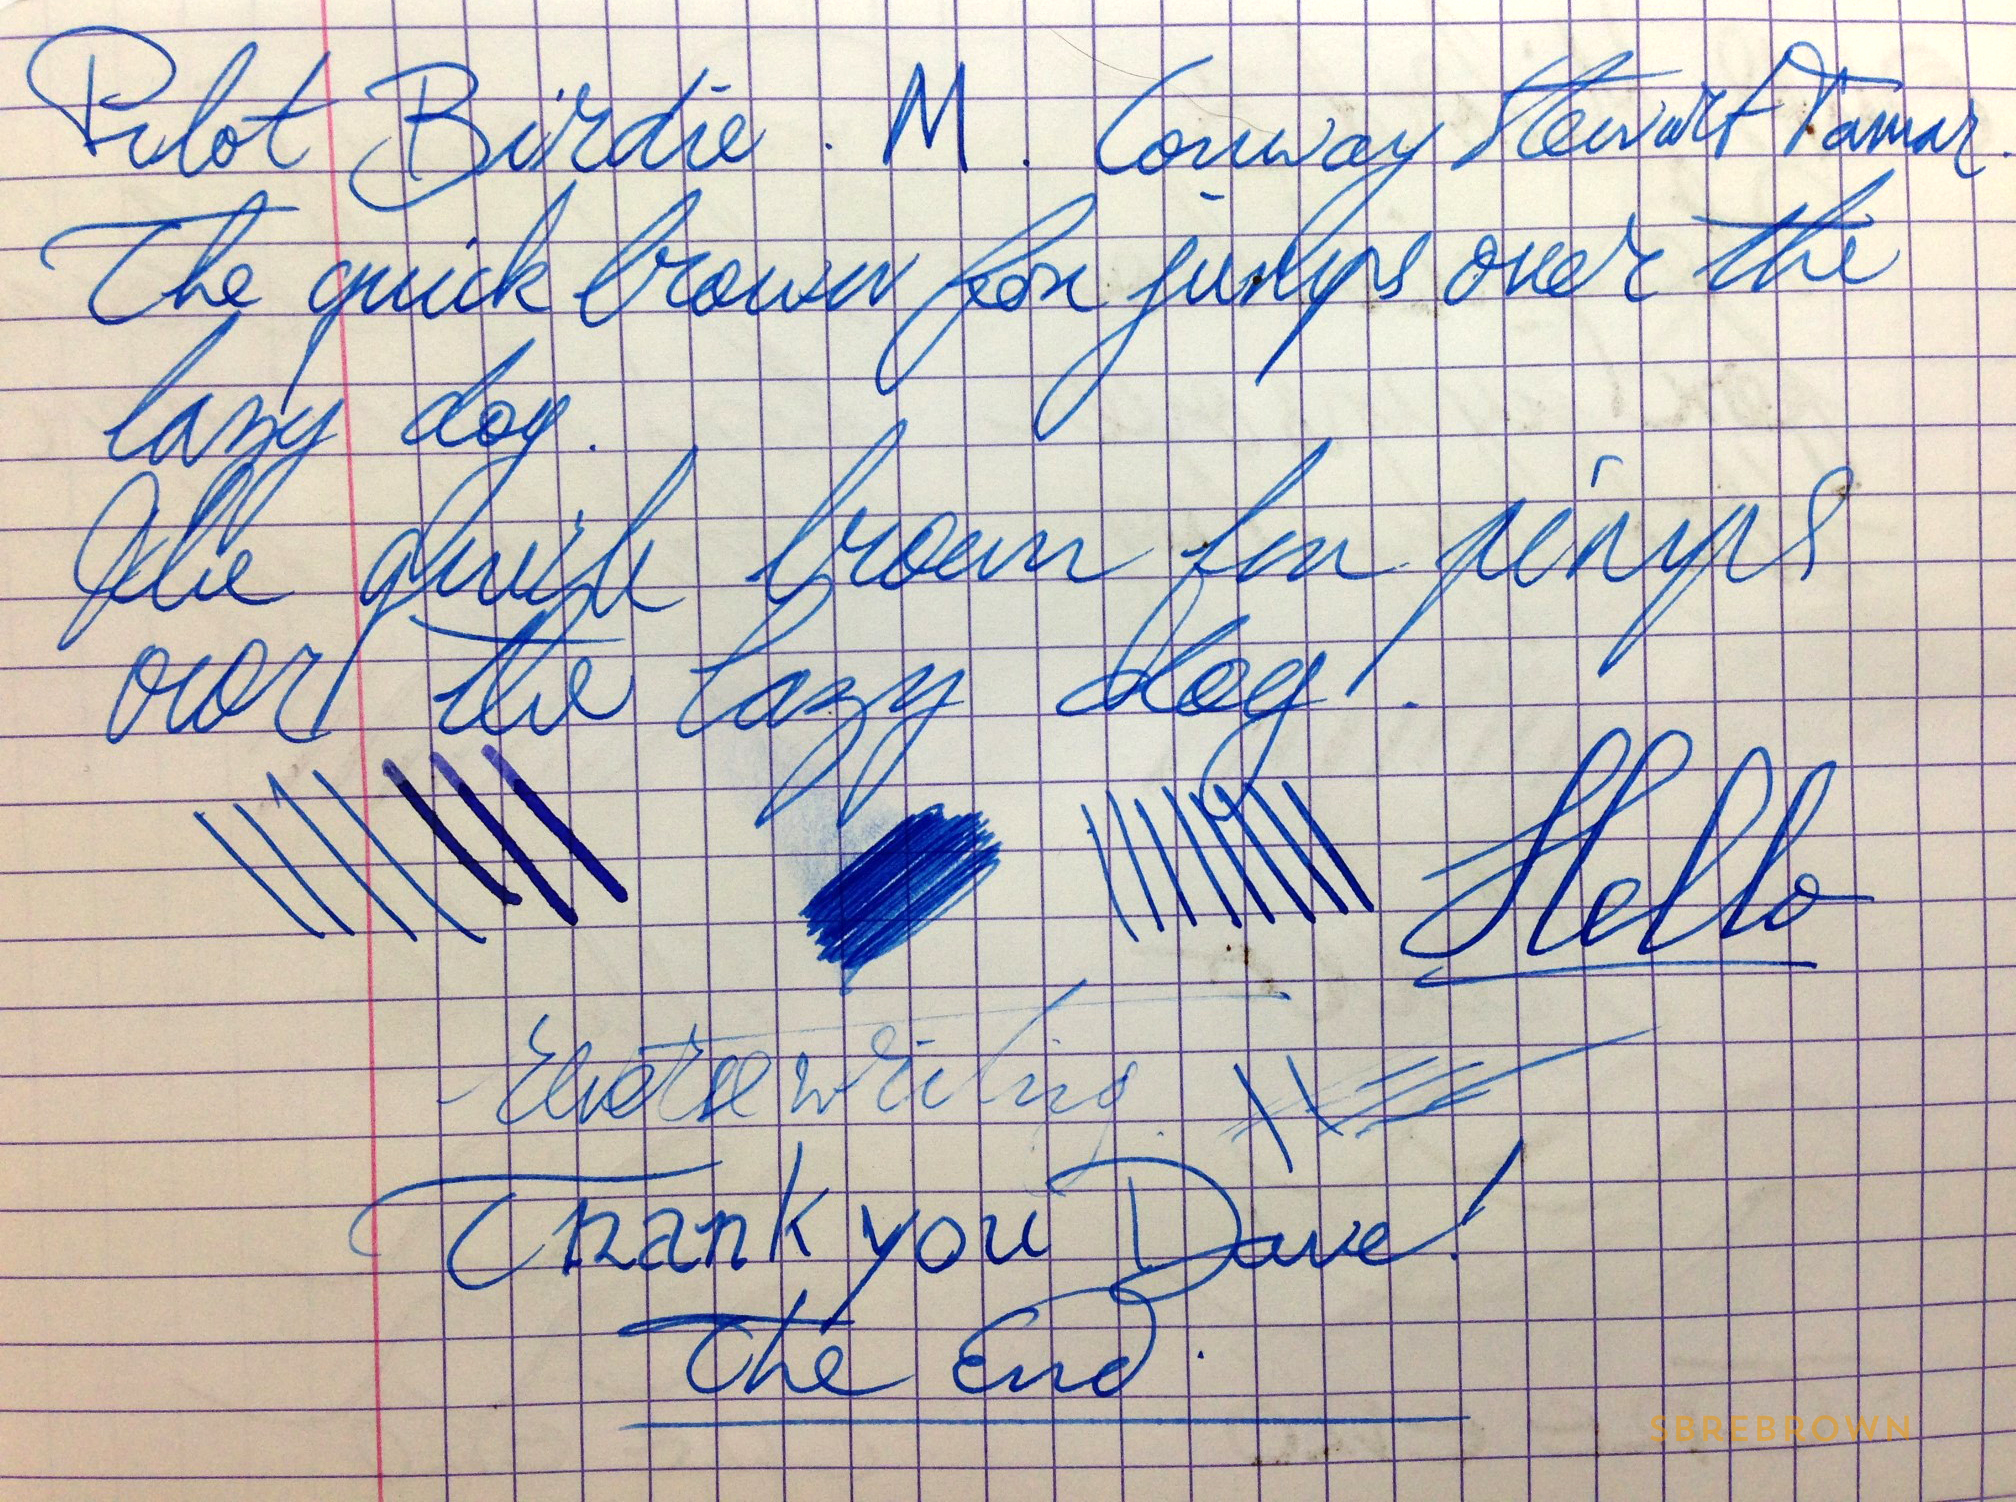 Pilot Birdie. M. Conway Stewart Tamar.
The quick brown fox jumps over the
lazy dog.
The quick brown fox jumps
over the lazy dog.
Hello
Reverse writing.
Thank you Dave!
The End.
SBREBROWN